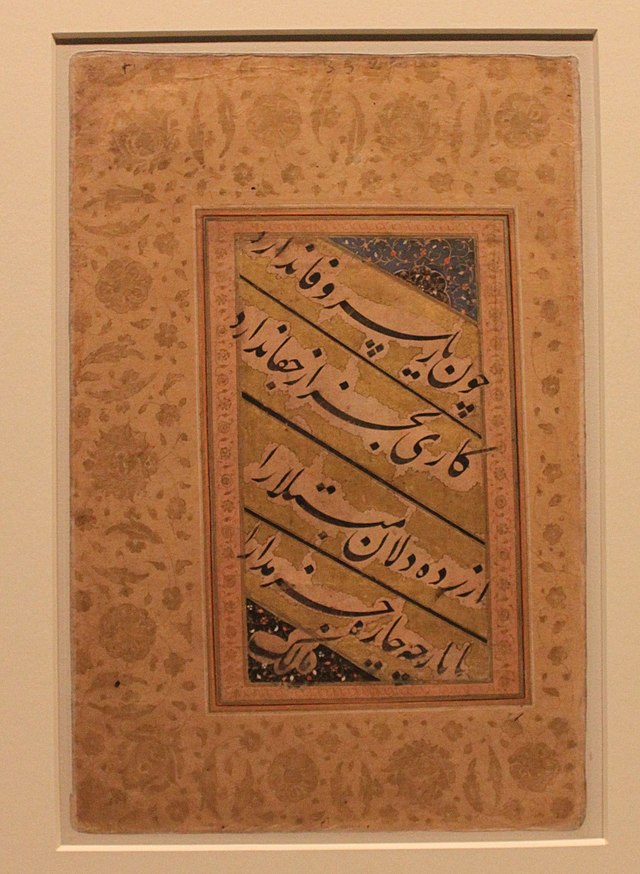 چون یار سر وفا ندارد
کاری بجز از جفا ندارد
ازرده دلان مبتلا را
با یار چه چاره جز مدارا